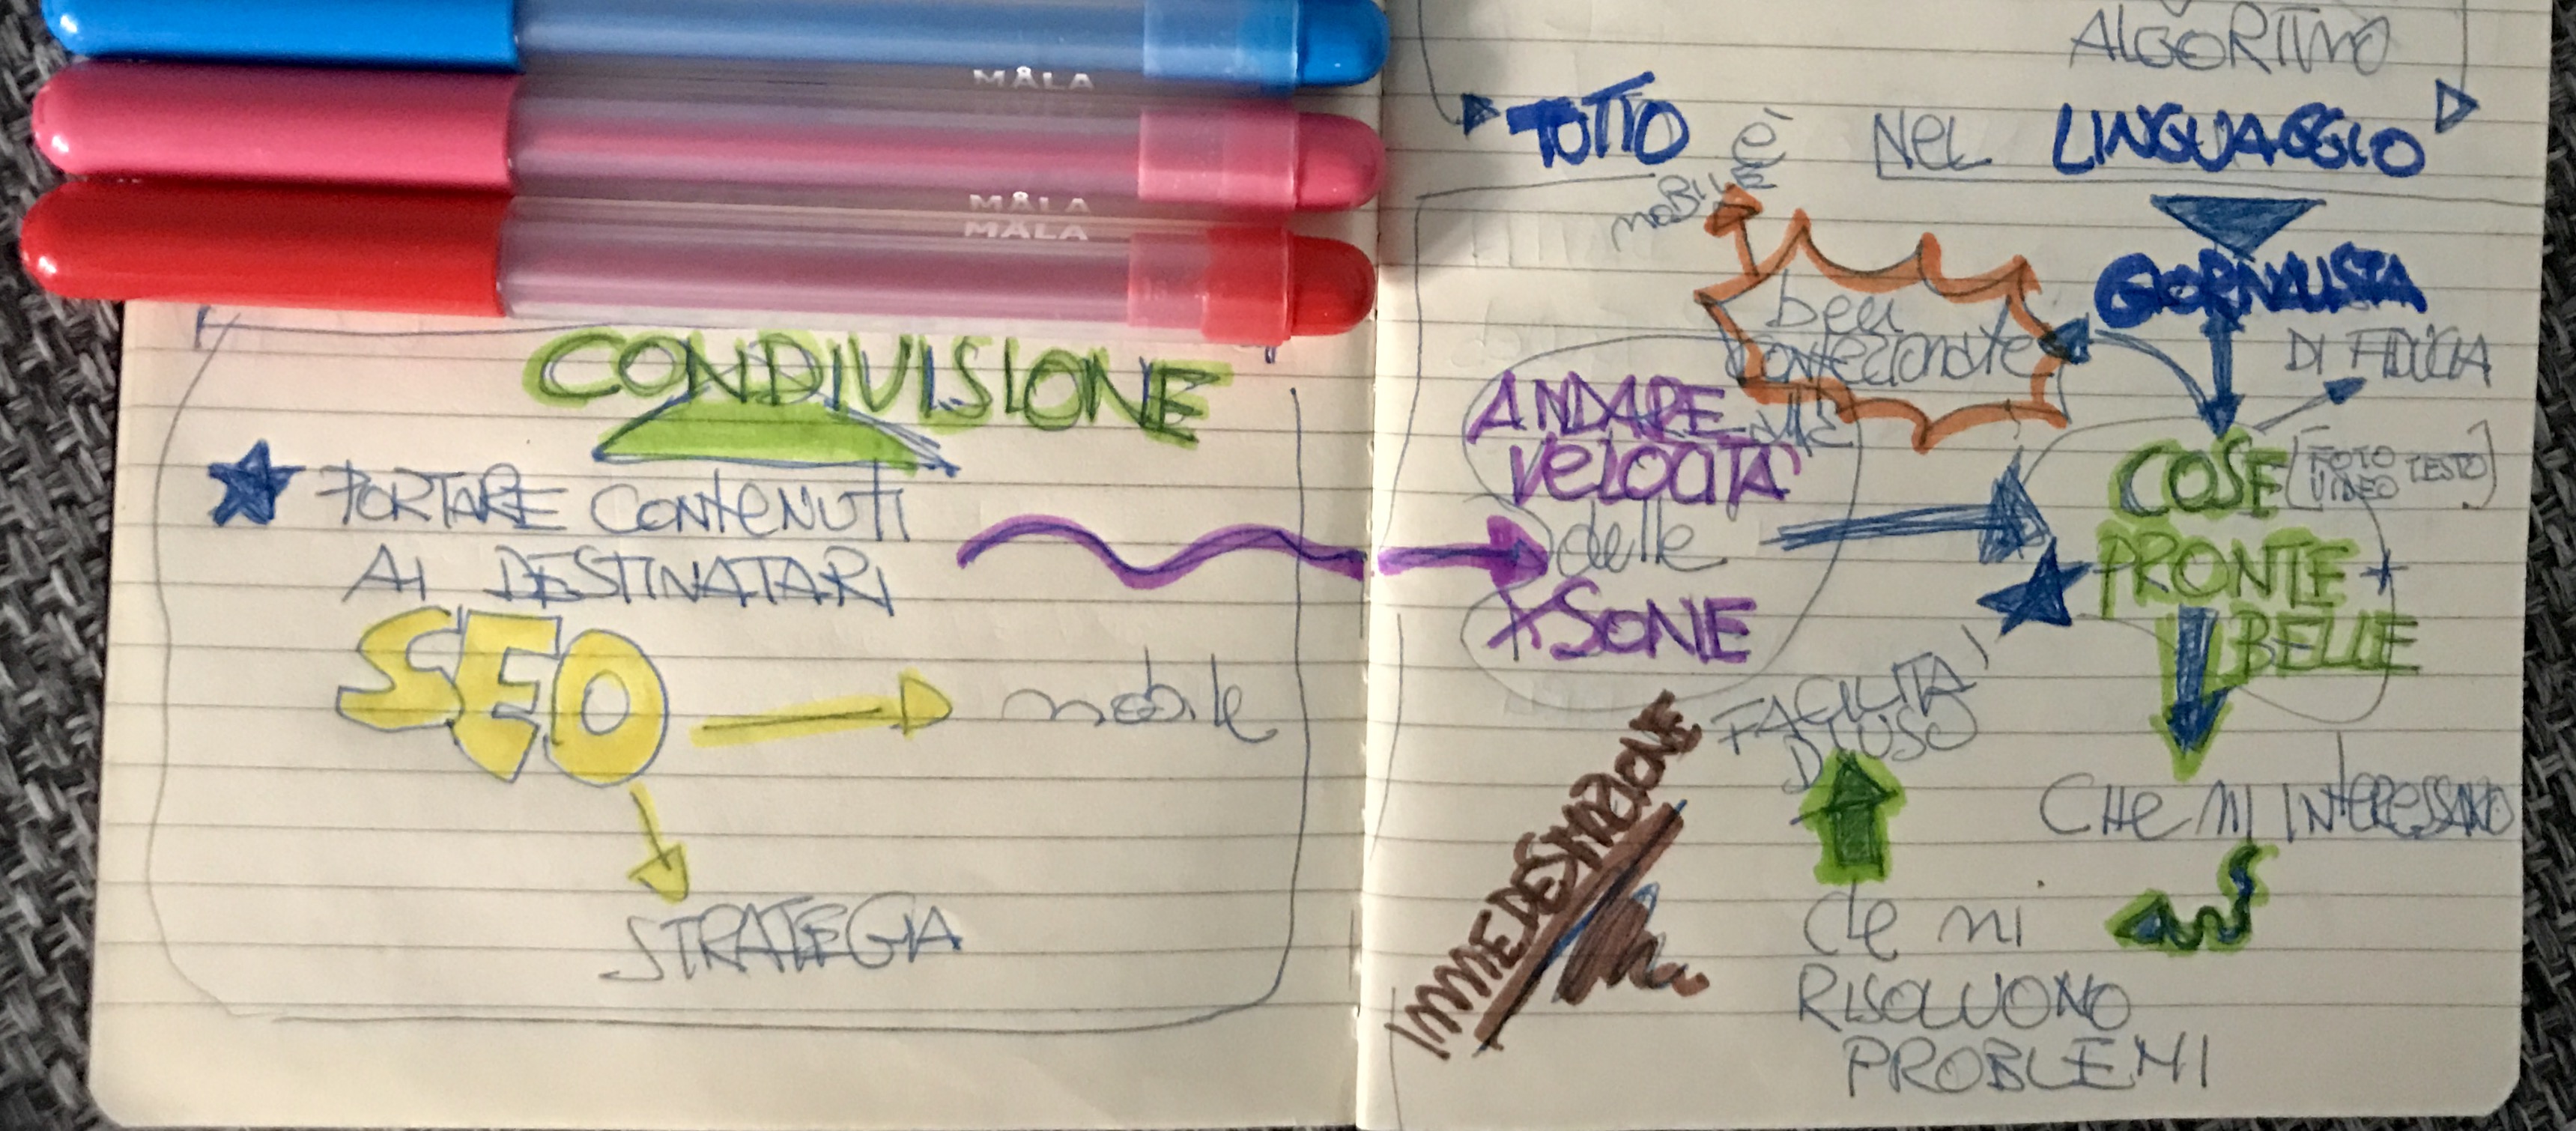 MÅLA
MÅLA
MÅLA
CONDIVISIONE
PORTARE CONTENUTI
AI DESTINATARI
SEO
mobile
STRATEGIA
ALGORITMO
TUTTO è NEL LINGUAGGIO
MOBILE
GIORNALISTA
DI FIDUCIA
ben
confezionate
ANDARE
VELOCITÀ
delle
XSONE
COSE [FOTO VIDEO TESTO]
PRONTE +
BELLE
FACILITÀ
D'USO
CHE MI INTERESSANO
IMMEDESIMAZIONE
che mi
RISOLVONO
PROBLEMI